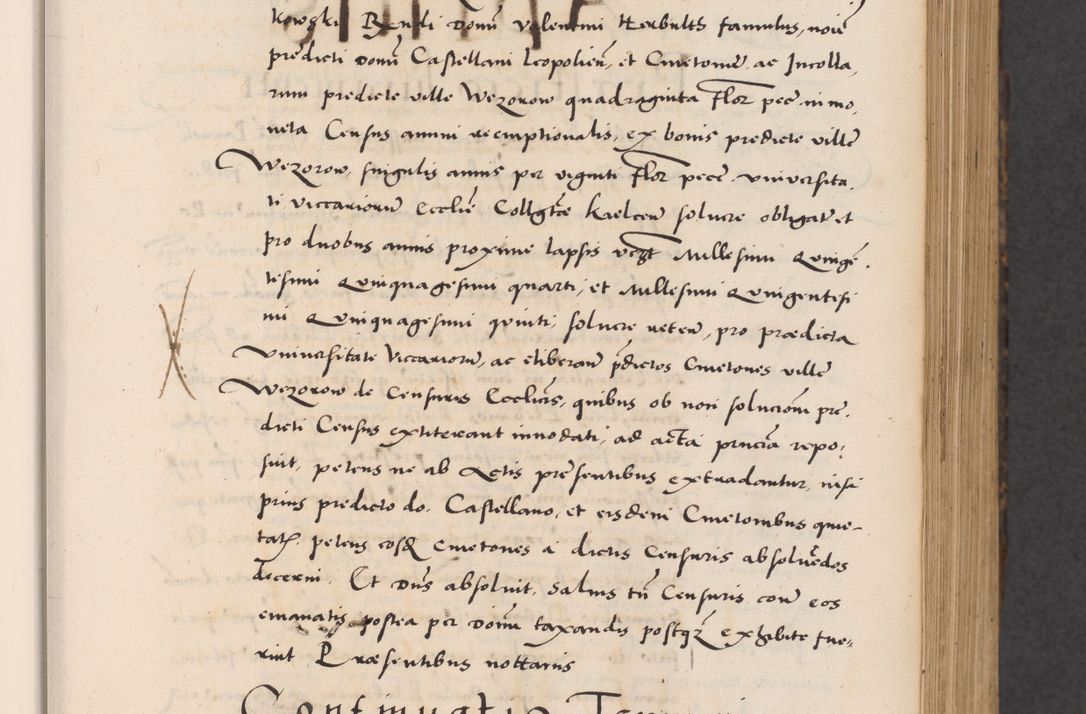 kowski Rndi Domi Valentini Herbults famulus, noie
predicti Domi Castellani Leopolien, et Cmetonum, ac Incolla,
rum predicte ville Wezorow quadraginta Flor pecc. in mo,
neta Census annui reemptionalis, ex bonis predicte ville
Wezorow, singulis annis per viginti Flor pecc. Universita,
ti Viccariorum Ecclie Collgtae Kielcen solvere obligat et
pro duobus annis proxime lapsis vczt Millesimi Quinge,
tesimi Quinquagesimi quarti, et Millesimi Quingentesi
mi Quinquagesimi quinti, solvere veten, pro praedicta
Universitate Viccariorum, ac eliberam pdictos Cmetones ville
Wezorow de Censuris Ecclicis, quibus ob non solucionem pre,
dicti Census extiterant innodati, ad acta pncia repo,
suit, petens ne ab Actis presentibus extradantur, nisi
prius predicto do. Castellano, et eisdem Cmetonibus quie-
tatis petens eosq Cmetones a dictis Censuris absolvedos
decerni. Et Dns absolvit, salvis tn Censuris. con eos
emanatis postea per Domi taxandis postqz exhibite fue-
rint Praesentibus nottariis
Continuatio Termini